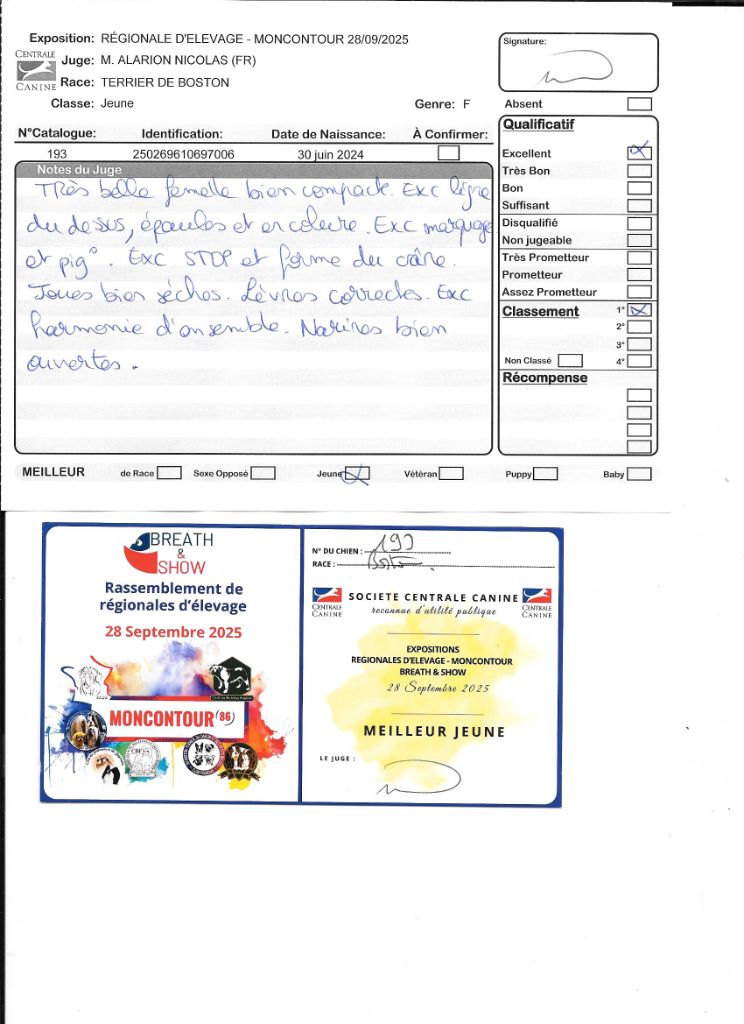 Exposition: RÉGIONALE D'ELEVAGE - MONCONTOUR 28/09/2025
CENTRALE CANINE
Juge: M. ALARION NICOLAS (FR)
Race: TERRIER DE BOSTON
Classe: Jeune Genre: F
N°Catalogue: Identification: Date de Naissance: À Confirmer:
193 250269610697006 30 juin 2024
Notes du Juge
Très belle femelle bien compact. Exc ligne
du dessus, épaules et encolure. Exc marquage
et pig°. Exc STOP et forme du crâne.
Joues bien sèches. Lèvres correctes. Exc
harmonie d'ensemble. Narines bien
ouvertes.
Signature:
Absent
Qualificatif
Excellent
Très Bon
Bon
Suffisant
Disqualifié
Non jugeable
Très Prometteur
Prometteur
Assez Prometteur
Classement 1°
2°
3°
Non Classé 4°
Récompense
MEILLEUR de Race Sexe Opposé Jeune Vétéran Puppy Baby
BREATH
&
SHOW
Rassemblement de
régionales d'élevage
28 Septembre 2025
MONCONTOUR (86)
N° DU CHIEN : 193
RACE : Boston
CENTRALE CANINE
SOCIETE CENTRALE CANINE
reconnue d'utilité publique
CENTRALE CANINE
EXPOSITIONS
REGIONALES D'ELEVAGE - MONCONTOUR
BREATH & SHOW
28 Septembre 2025
MEILLEUR JEUNE
LE JUGE :